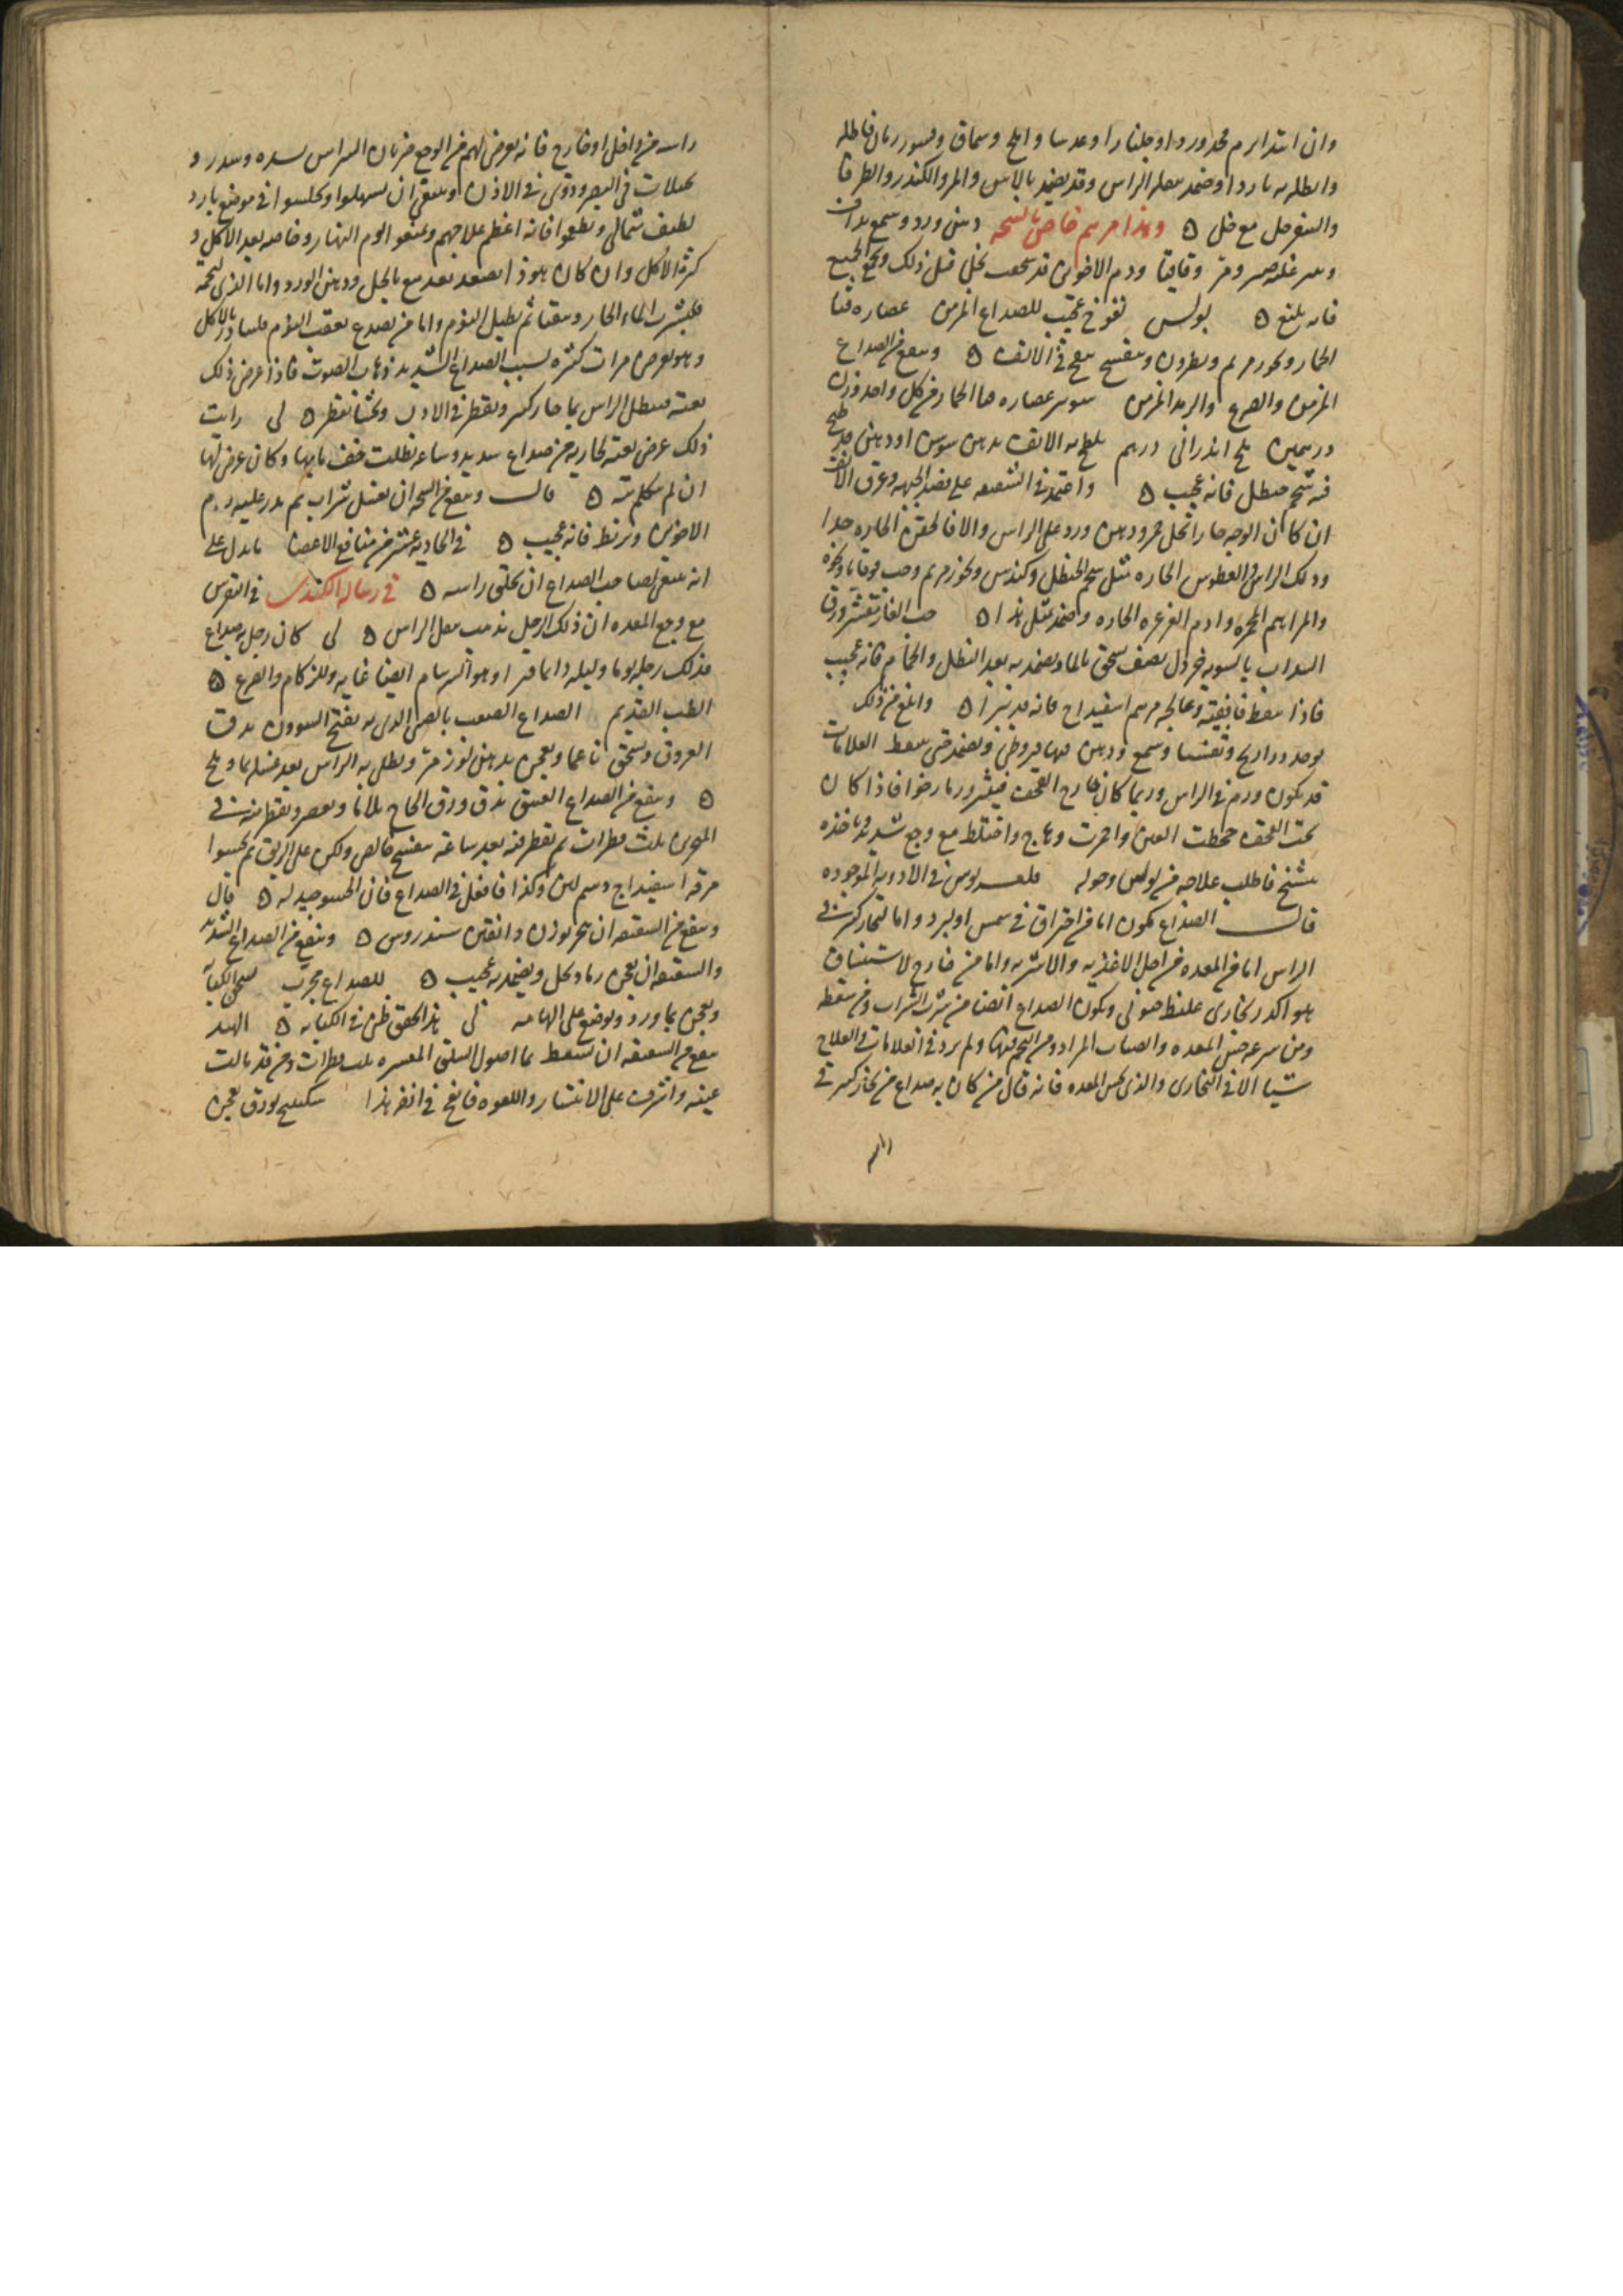 وان ابتدا يرم فخذ وردا وجلنارا وعدسا واملج وسماق وقسور رمان فاطله
واطله به باردا وضمد سله الراس وقد يضمد بالاس والمر والكندر والطرفا
والسفرجل مع خل ه وهذا مرهم خاص بالشجه دهن ورد وشمع يداف
ومر وقاقيا ودم الاخوين قد سحقت بخل قبل ذلك ويجمع الجميع
فانه بليغ ه بولس نفوخ عجيب للصداع المزمن عصاره قثا
الحمار وبخور مريم ونطرون وبنفسج ينفخ في الانف ه وينفع من الصداع
المزمن والصرع والرمد المزمن عصاره قثا الحمار من كل واحد وزن
درهمين ملح اندرانى درهم يلطخ به الانف بدهن سوسن او دهن قد طبخ
فيه شحم حنظل فانه عجيب ه واعتمد في الشقيقه على فصد الجبهه وعرق الانف
ان كان الوجه حارا خل خمر ودهن ورد على الراس والا فالحقن الحاره جدا
ودلك الراس والعطوس الحاره مثل شحم الحنظل وكندس وبخور مريم وحب قوقايا ونحوه
والمراهم المحمره وادم الغرغره الحاره وضمد بمثل هذا ه حب الغار مقشر ورق
السداب بالسويه خردل نصف يسحق بالماء ويضمد به بعد النطل والحمام فانه عجيب
فاذا فعالجه مرهم اسفيداج فانه يبرا ه وابلغ من ذلك
يوخذ ذراريح وتفسيا وشمع ودهن قيروطى ويضمد حتى ينفط العلامات
قد يكون ورم في الراس وربما كان خارج القحف فيثور ورما رخوا فاذا كان
تحت القحف جحظت العين واحمرت وهاج واختلط مع وجع شديد وياخذه
تشنج فاطلب علاجه من بولس وحوله في الادويه الموجوده
قال الصداع يكون اما من احتراق في شمس او لبرد واما لبخار كثير في
الراس اما من المعده من اجل الاغذيه والاشربه واما من خارج لاستنشاق
هوا كدر بخارى غليظ ويكون الصداع ايضا من شرب الشراب ومن سقطه
ومن سرعه حس المعده وانصباب المرار ومن التخم فيها ولم يرد في العلامات والعلاج
شيا الا في البخارى والذى لحس المعده فانه قال من كان به صداع من بخار كثير في
راسه
راسه من داخل او خارج فانه يعرض لهم من الوجع ضربان الراس وسدر و
خيالات في البصر ودوى في الاذن وينبغى ان يسهلوا ويجلسوا في موضع بارد
لطيف شمالى ويطعموا فانه اعظم علاجهم ويمنعوا نوم النهار وخاصه بعد الاكل و
كثره الاكل وان كان هوذا يصعد بعد مع بالخل ودهن الورد واما الذى لتخمه
فليشرب الماء الحار ويتقيا ثم يطيل النوم واما من يصدع بعقب النوم فليبادر بالاكل
وهو يعرض مرات كثيره لسبب الصداع الشديد ذهاب الصوت فاذا عرض ذلك
بغته فينطل الراس بما حار كثير ويقطر في الاذن ويحشا بقطن ه لى رايت
ذلك عرض بغته لجاريه من صداع شديد وساعه نطلت خف ما بها وكان عرض لها
ان لم تكلم بته ه قال وينفع من الشجه ان تغسل بشراب ثم يذر عليه دم
الاخوين وتربط فانه عجيب ه في الحاديه عشر من منافع الاعضا ما يدل على
انه ينبغى لصاحب الصداع ان يحلق راسه ه في رساله الكندى في النقرس
مع وجع المعده ان ذلك الرجل يذهب بثقل الراس ه لى كان رجل به صداع
فدلك رجليه يوما وليله دايما فبرا وهو للسرسام ايضا غايه وللزكام والصرع ه
الطب القديم الصداع الصعب الذى به يفتح يدق
العروق ويسحق ناعما ويعجن بدهن لوز مر ويطلى به الراس بعد غسله بما وملح
ه وينفع من الصداع العتيق يدق ورق الحاج بلا ما ويعصر ويقطر منه في
المنخرين ثلث قطرات ثم يقطر فيه بعد ساعه بنفسج خالص وليكن على الريق ثم يحسوا
مرقه اسفيداج دسم لين وكذا فافعل في الصداع فان الحسو جيد له ه قال
وينفع من الشقيقه ان يبخر بوزن دانقين سندروس ه وينفع من الصداع الشديد
والشقيقه ان يعجن رماد بخل ويضمد به عجيب ه للصداع مجرب يسحق الكبابه
ويعجن بما ورد ويوضع على الهامه لى هذا لحق ظرف في الكبابه ه الهند
ينفع من الشقيقه ان يسعط بما اصول السلق المعتصره ثلث قطرات ومن قد مالت
عينه واشرف على الانتشار واللقوه فانفخ في انفه هذا سكبينج بورق يعجن